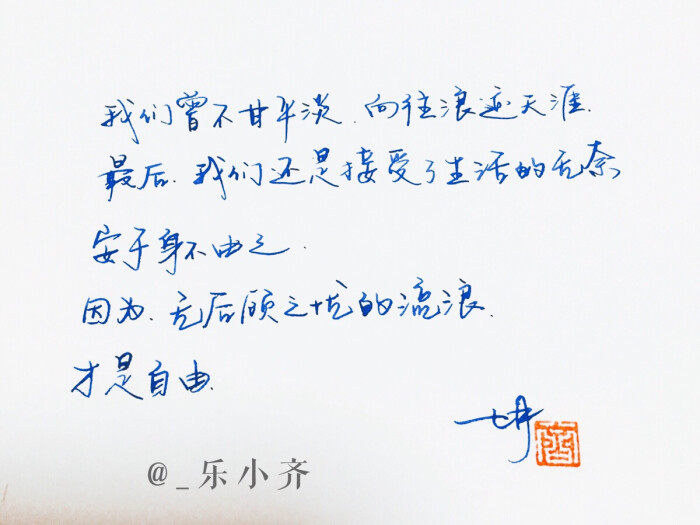 我们曾不甘平淡.向往浪迹天涯.
最后.我们还是接受了生活的无奈
安于身不由己.
因为.无后顾之忧的流浪.
才是自由.
@_乐小齐